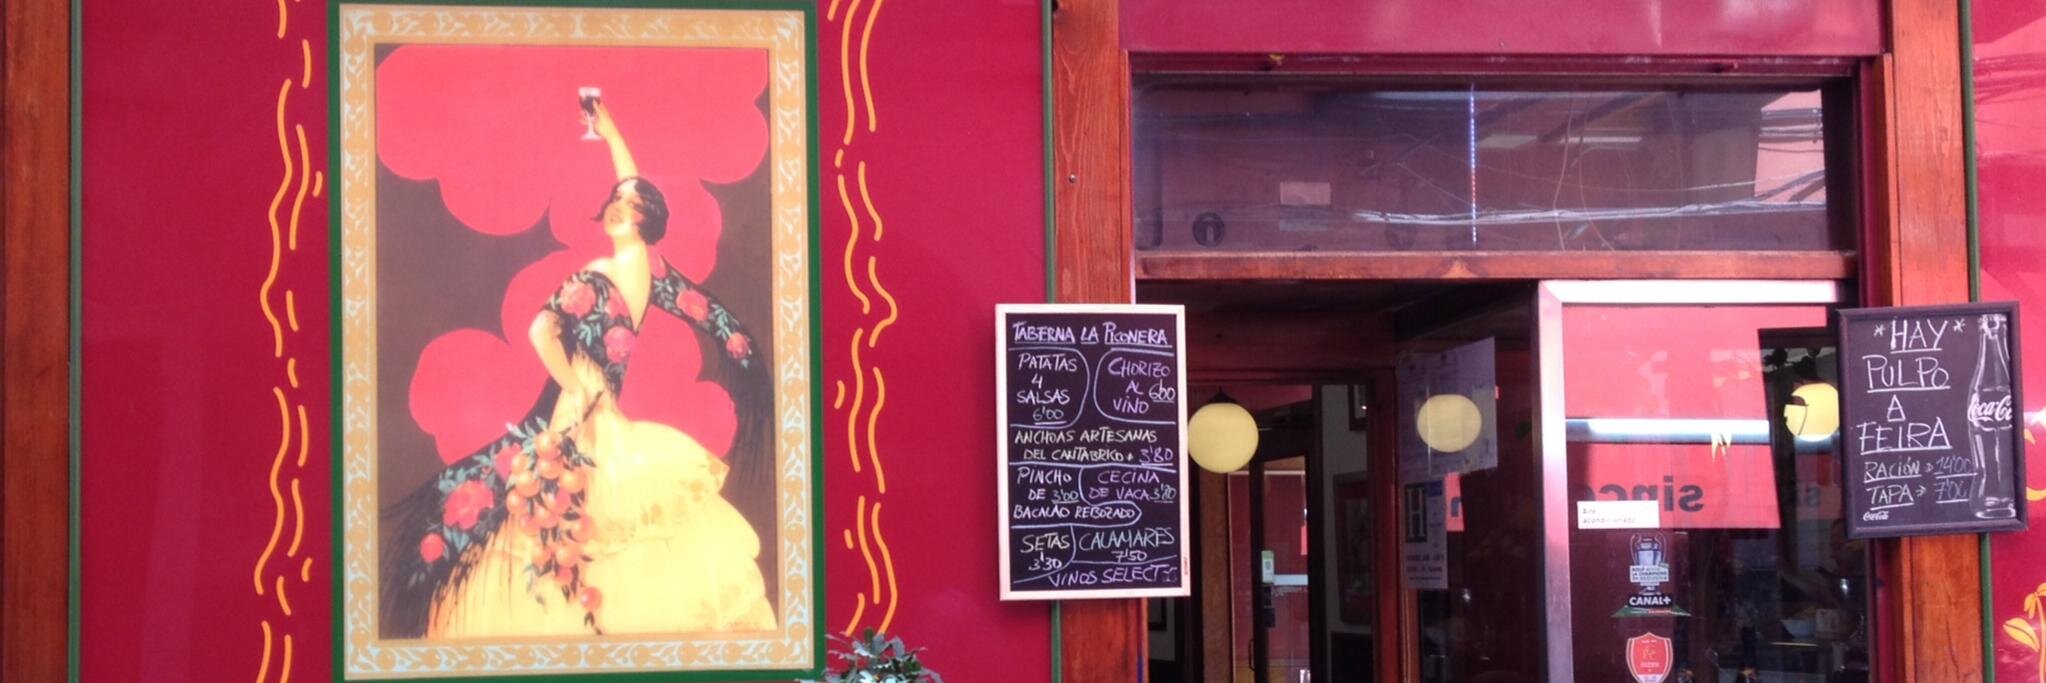 TABERNA LA PICONERA
PATATAS
4
SALSAS
6'00
CHORIZO
AL 6'00
VINO
ANCHOAS ARTESANAS
DEL CANTABRICO 3'80
PINCHO
DE 3'00
BACALAO REBOZADO
CECINA
DE VACA 3'80
SETAS
3'30
CALAMARES
7'50
VINOS SELECTOS
*HAY*
PULPO
A
FEIRA
RACIÓN → 14'00
TAPA → 7'00
Coca-Cola
Coca-Co
Aire
acondicionado
CANAL+
H